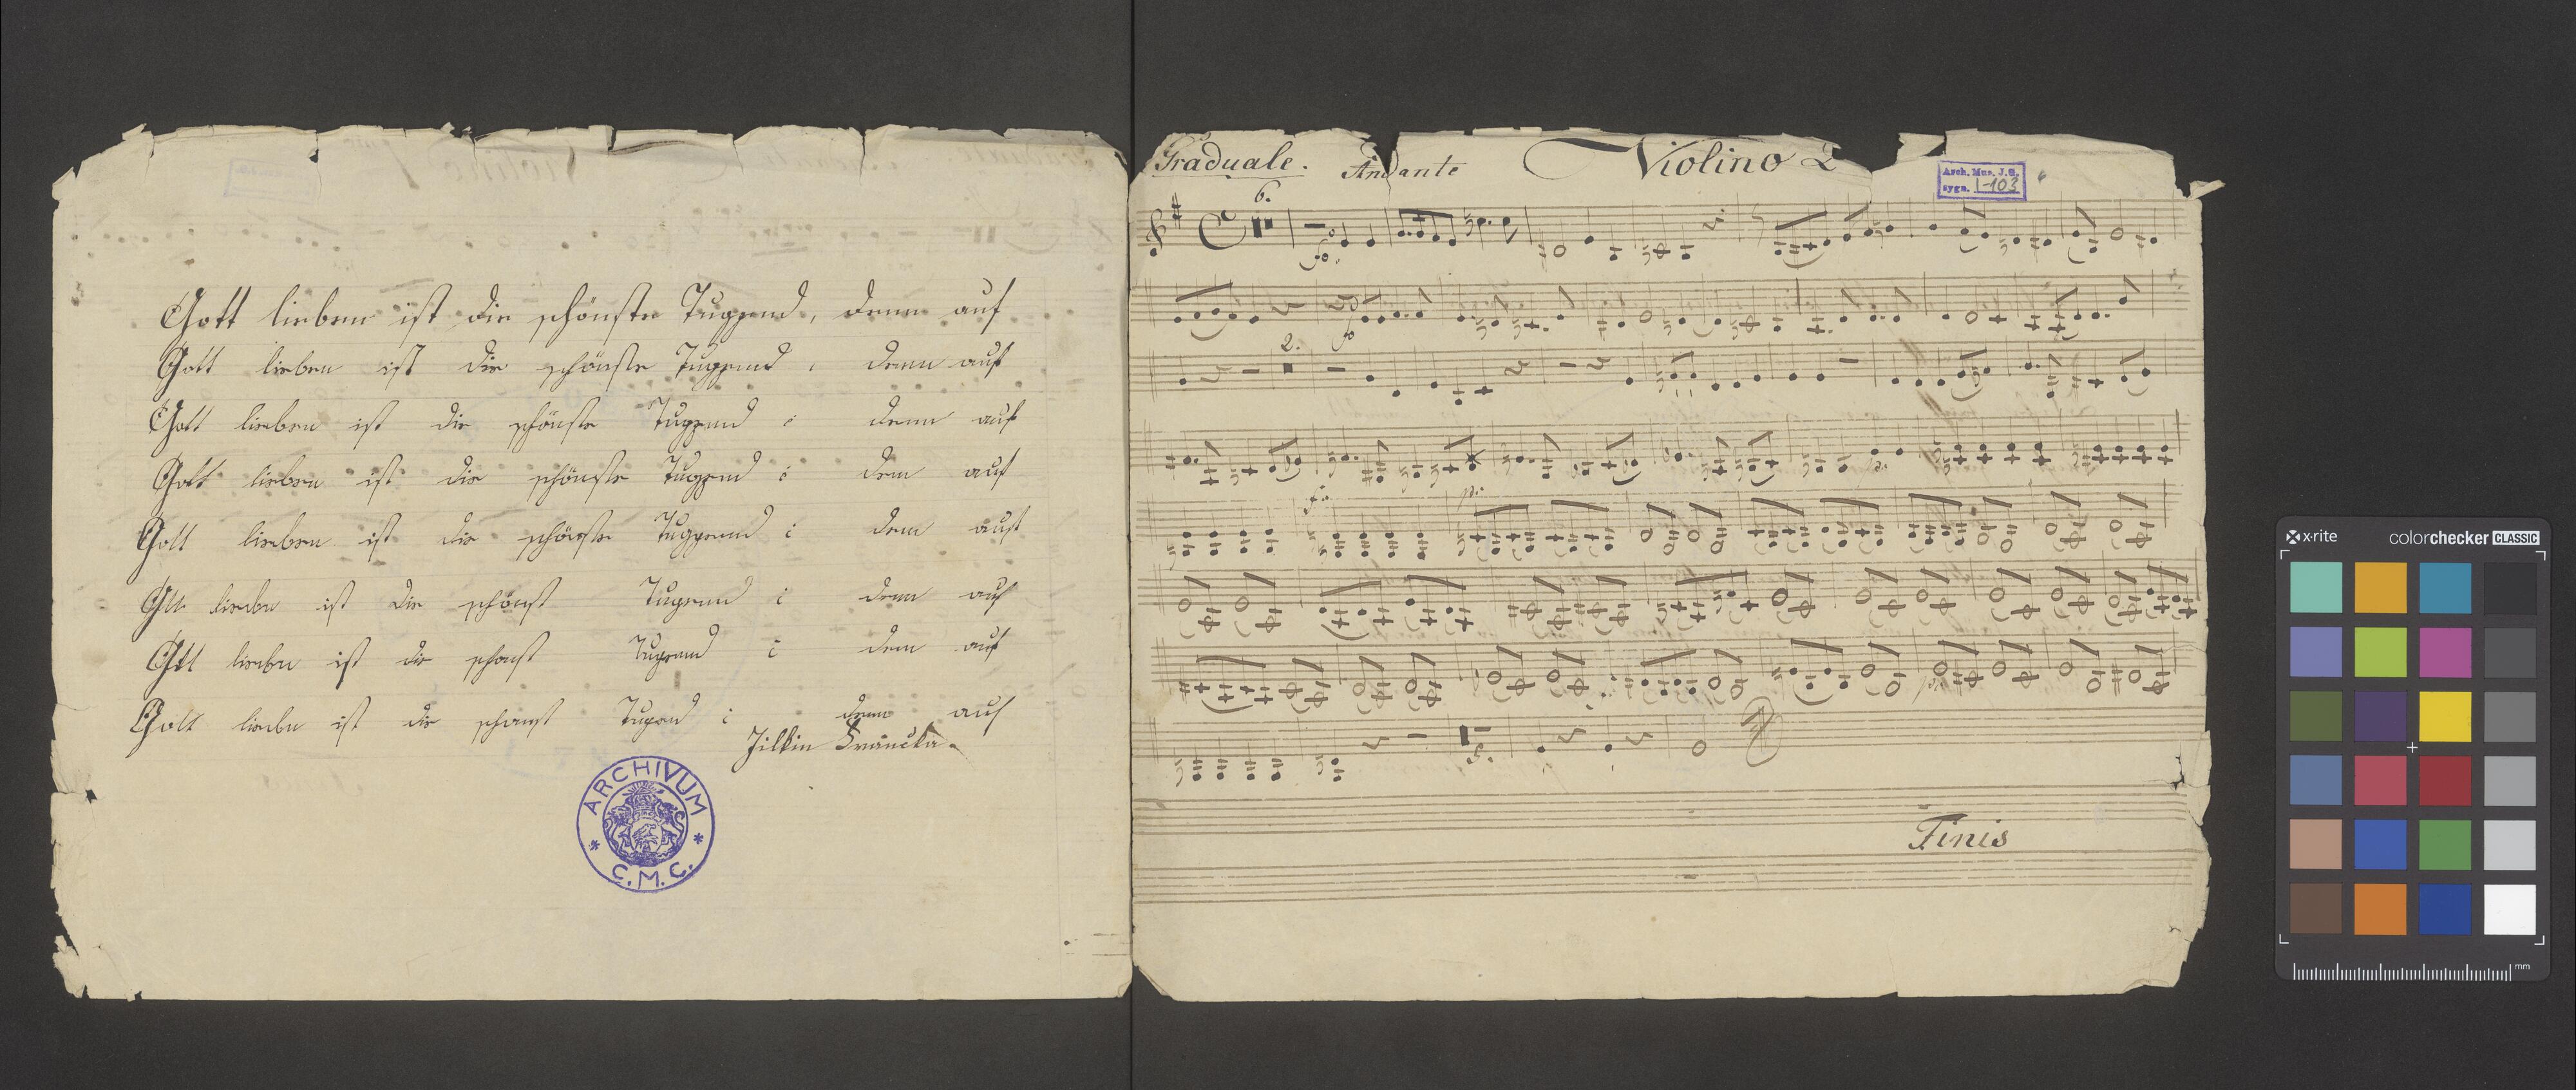 Gott lieben ist die schönste Tuggend, denn auf
Gott lieben ist die schönste Tuggend, denn auf
Gott lieben ist die schönste Tuggend : denn auf
Gott lieben ist die schönste Tuggend : dem auf
Gott lieben ist die schönste Tuggend : dem auf
Gtt liebn ist die schönst Tugend : denn auf
Gtt liebn ist die schonst Tugend : dem auf
Gott liebn ist die schonst Tugend : denn auf
ARCHIVUM
* C.M.C. *
Graduale. Andante Violino 2
Arch. Mus. J.G.
sygn. I-103
6.
fo
fo
2.
p:
5.
Finis
x·rite colorchecker CLASSIC
mm